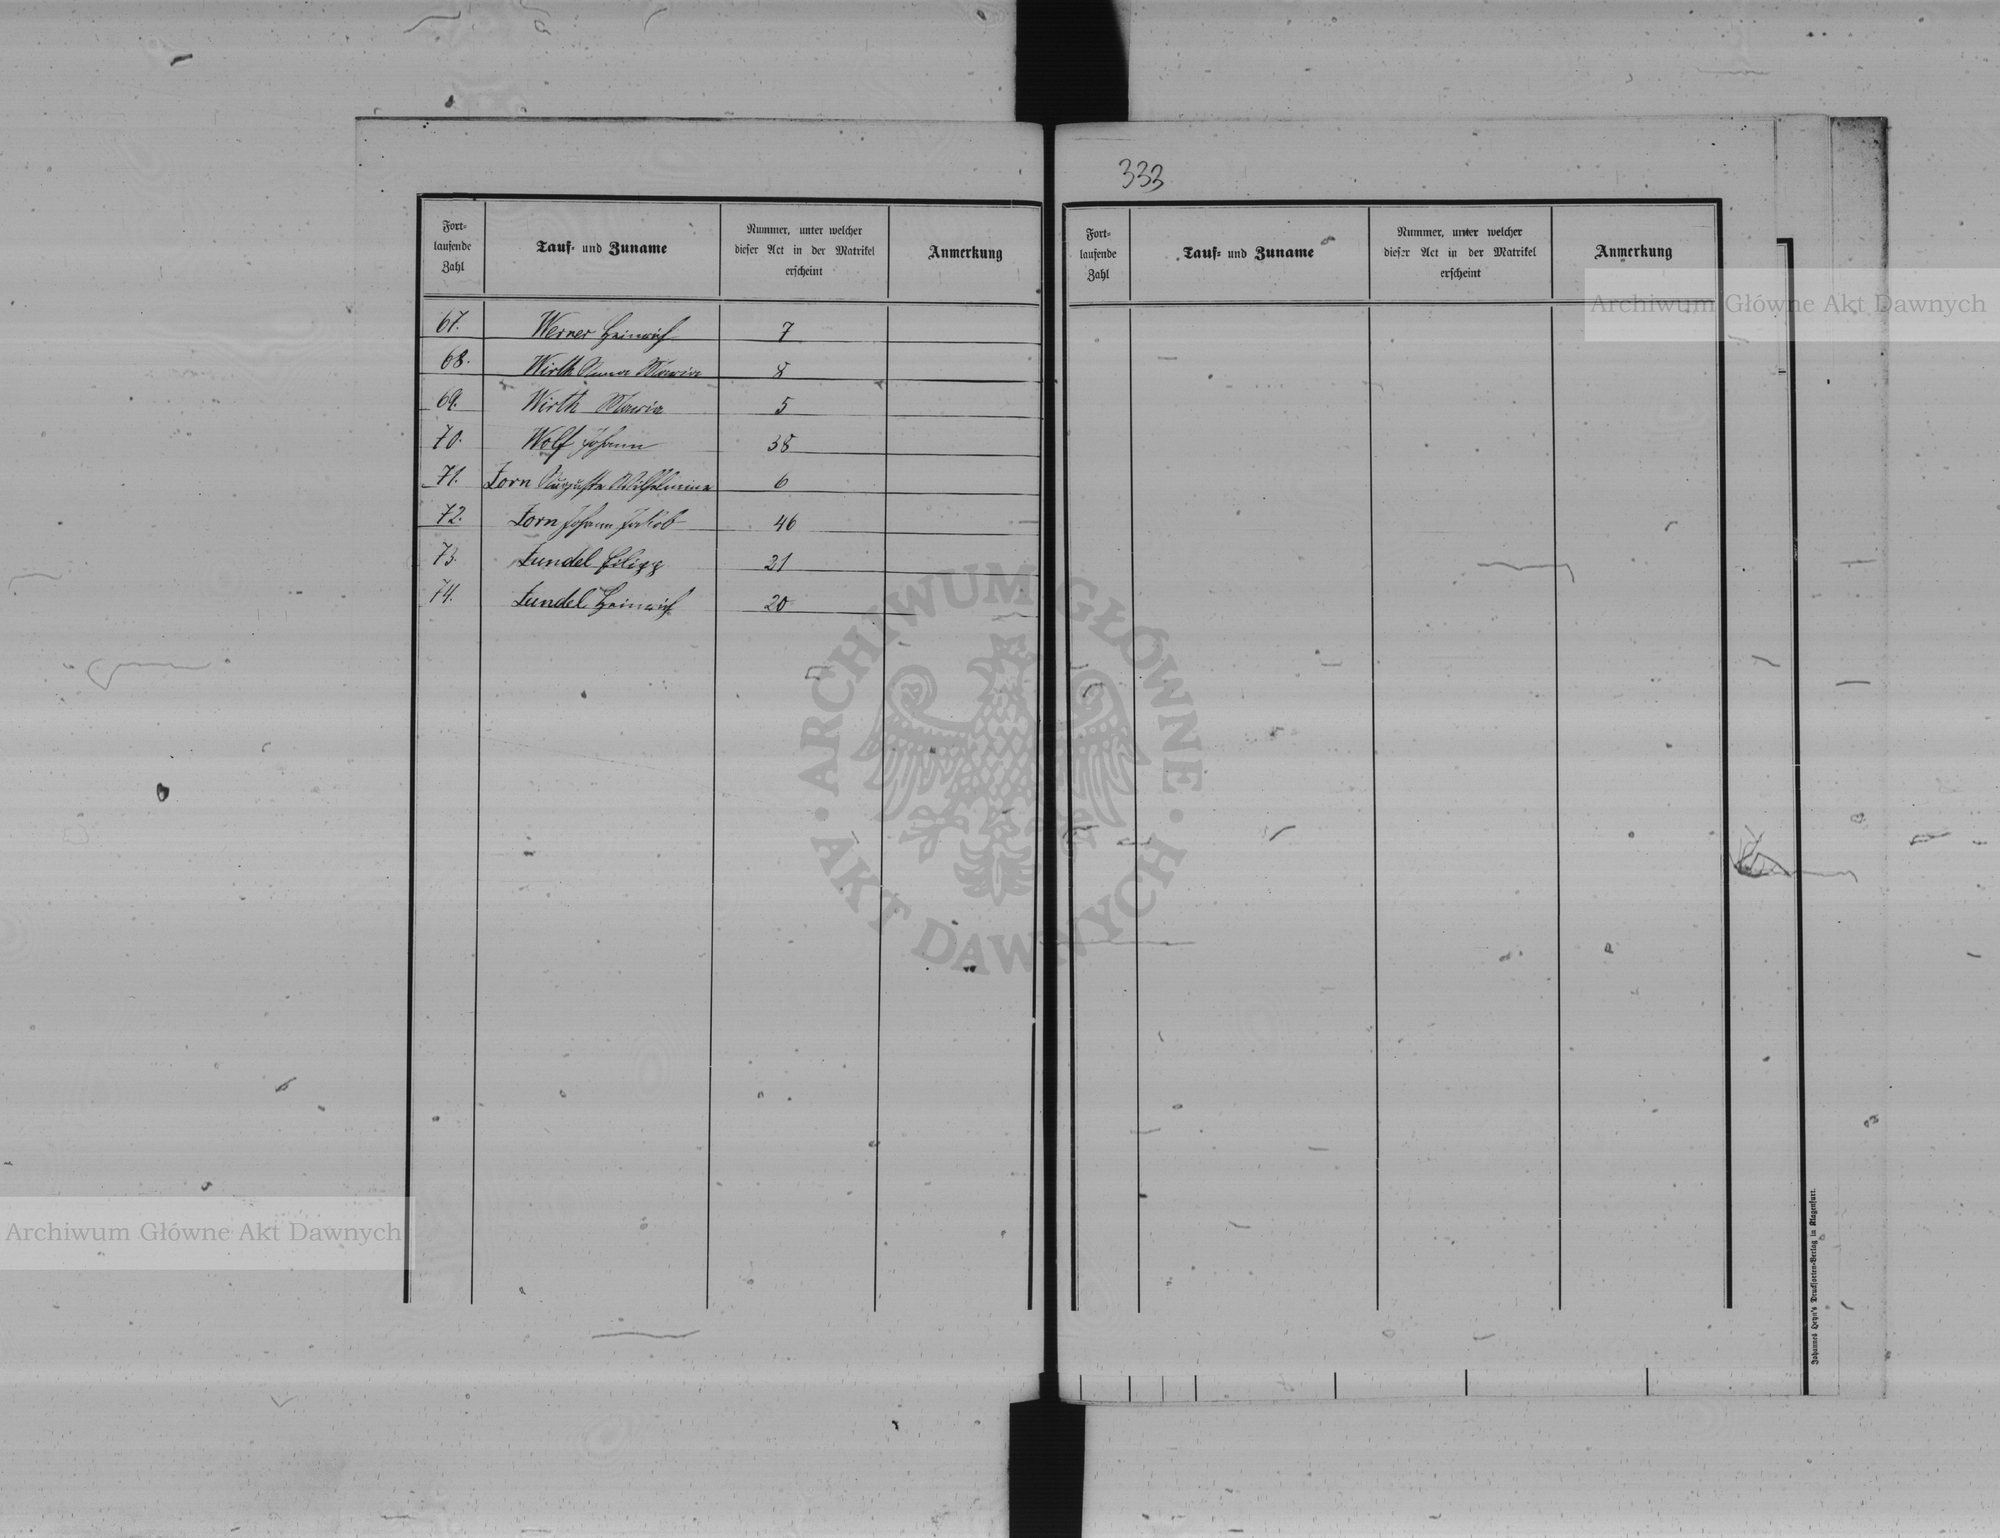 333
Fort-
laufende
Zahl
Tauf- und Zuname
Nummer, unter welcher
dieser Act in der Matrikel
erscheint
Anmerkung
67. Werner Heinrich 7
68. Wirth Anna Maria 8
69. Wirth Maria 5
70. Wolf Johann 38
71. Zorn Augusta Wilhelmina 6
72. Zorn Johann Jakob 46
73. Zundel Filipp 21
74. Zundel Heinrich 20
Fort-
laufende
Zahl
Tauf- und Zuname
Nummer, unter welcher
dieser Act in der Matrikel
erscheint
Anmerkung
Johannes Heyn's Drucksorten-Verlag in Klagenfurt.
Archiwum Główne Akt Dawnych
ARCHIWUM GŁÓWNE
AKT DAWNYCH
Archiwum Główne Akt Dawnych